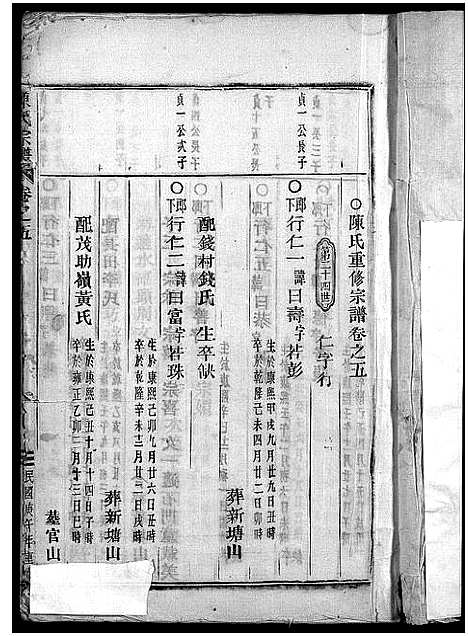 ○陳氏重修宗譜卷之五
第二十四世
仁字行
貞一公長子
○郎下行仁一諱曰壽字壯彭
生於康熙甲戌九月廿九日丑時
卒於乾隆己未四月廿二日卯時
葬新塘山
配錢村錢氏 生卒缺
貞一公次子
○郎下行仁二諱曰富字壯珠
生於康熙己卯九月廿六日丑時
卒於乾隆辛未十二月廿二日戌時
葬新塘山
配茂助嶺黃氏
生於康熙己丑十月十四日子時
卒於雍正乙卯二月十三日巳時
墓官山
陳氏宗譜
卷之五
民國庚午年